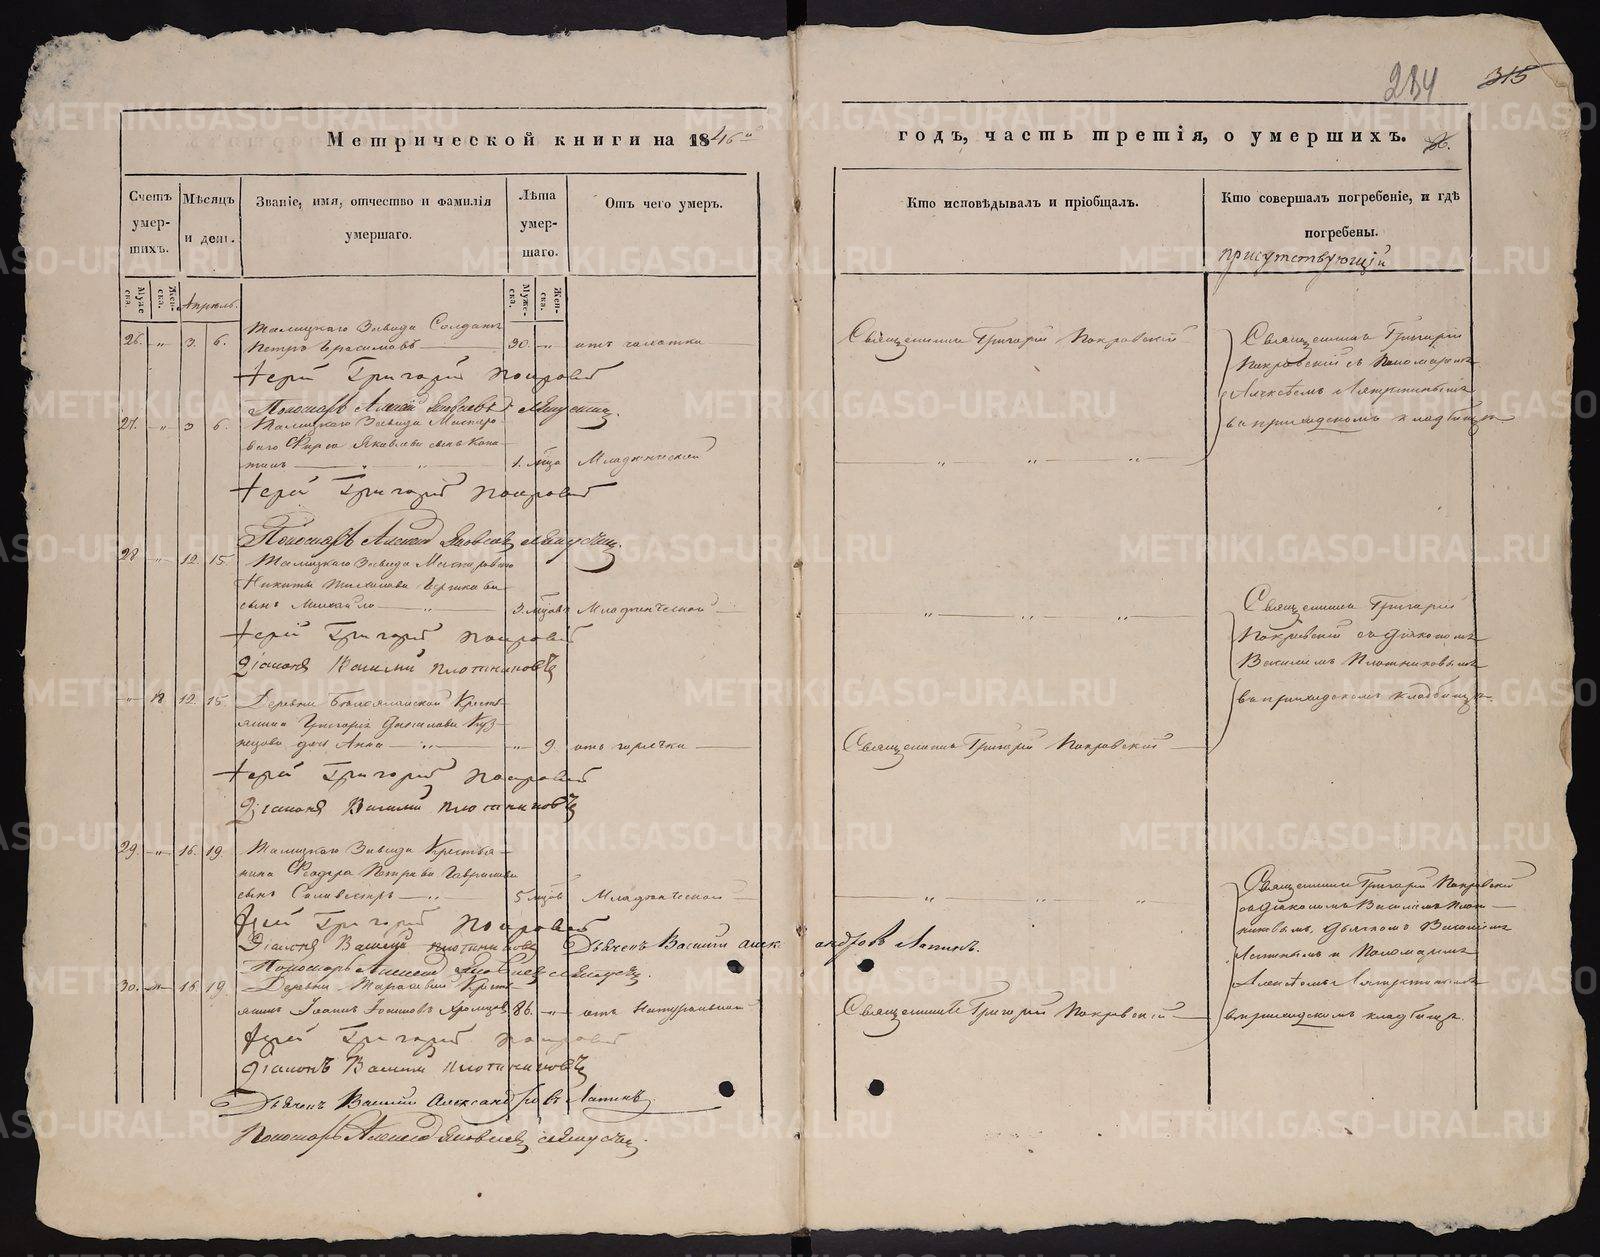 284 315
Метрической книги на 1846й годъ, часть третія, о умершихъ.
Счетъ умер-шихъ.
Мѣсяцъ и день.
Званіе, имя, отчество и фамилія умершаго.
Лѣта умер-шаго.
Отъ чего умеръ.
Кто исповѣдывалъ и пріобщалъ.
Кто совершалъ погребеніе, и гдѣ погребены.
присутствующій
Муже ска.
Жен-ска.
Апрѣль.
Муже-ска.
Жен-ска.
Талицкаго Завода Солдатъ
26. „ 3. 6. Петръ Герасимовъ 30. „ отъ чахотки
Священникъ Григорій Покровскій
Священникъ Григорій
Покровскій съ Пономаремъ
Алексѣемъ
въ приходскомъ кладбищѣ
Іерей Григорій Покровскій
Пономарь Алексѣй Яковлевъ
27. „ 3 6. Талицкаго Завода Мастеро-
ваго Фирса Яковлева сынъ
1. мѣсяца Младенческой
Іерей Григорій Покровскій
Пономарь Алексѣй Яковлевъ
28 „ 12. 15. Талицкаго Завода Мастероваго
Никиты
сынъ Михайло 3. мѣсцовъ Младенческой
Священникъ Григорій
Покровскій съ Діакономъ
Василіемъ Плотниковымъ
въ приходскомъ кладбищѣ
Іерей Григорій Покровскій
Діаконъ Василій Плотниковъ
„ 18 12. 15. Деревни Кресть-
янина Григорія Данилова Куз-
нецова дочь Анна „ 9. отъ горячки
Священникъ Григорій Покровскій
Іерей Григорій Покровскій
Діаконъ Василій Плотниковъ
29. „ 16. 19. Талицкаго Завода Крестья-
нина Ѳеодора Петрова Гаврилова
сынъ Селивестръ 5 мѣсцовъ Младенческой
Священникъ Григорій Покровскій
съ Діакономъ Василіемъ Плот-
никовымъ, Дьячкомъ Василіемъ
Лапинымъ и Пономаремъ
Алексѣемъ
въ приходскомъ кладбищѣ.
Іерей Григорій Покровскій
Діаконъ Василій Плотниковъ Дьячекъ Василій Александровъ Лапинъ.
Пономарь Алексѣй Яковлевъ
30. „ 16. 19. Деревни Кресть-
янинъ Іоаннъ 86. „ отъ Натуральной
Священникъ Григорій Покровскій
Іерей Григорій Покровскій
Діаконъ Василій Плотниковъ
Дьячекъ Василій Александровъ Лапинъ.
Пономарь Алексѣй Яковлевъ
METRIKI.GASO-URAL.RU